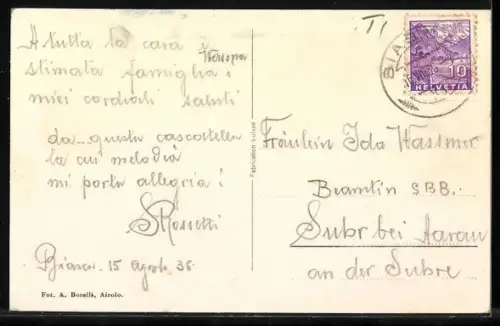 A tutta la cara
stimata famiglia i
miei cordiali saluti
da... questa cascatella
la cui melodia
mi porta allegria!
S Rossetti
Biasca. 15 Agosto 36
Fot. A. Borelli, Airolo.
T
BIASCA
10
HELVETIA
Fräulein Ida Wassmer
Beamtin SBB.
Suhr bei Aarau
an der Suhre